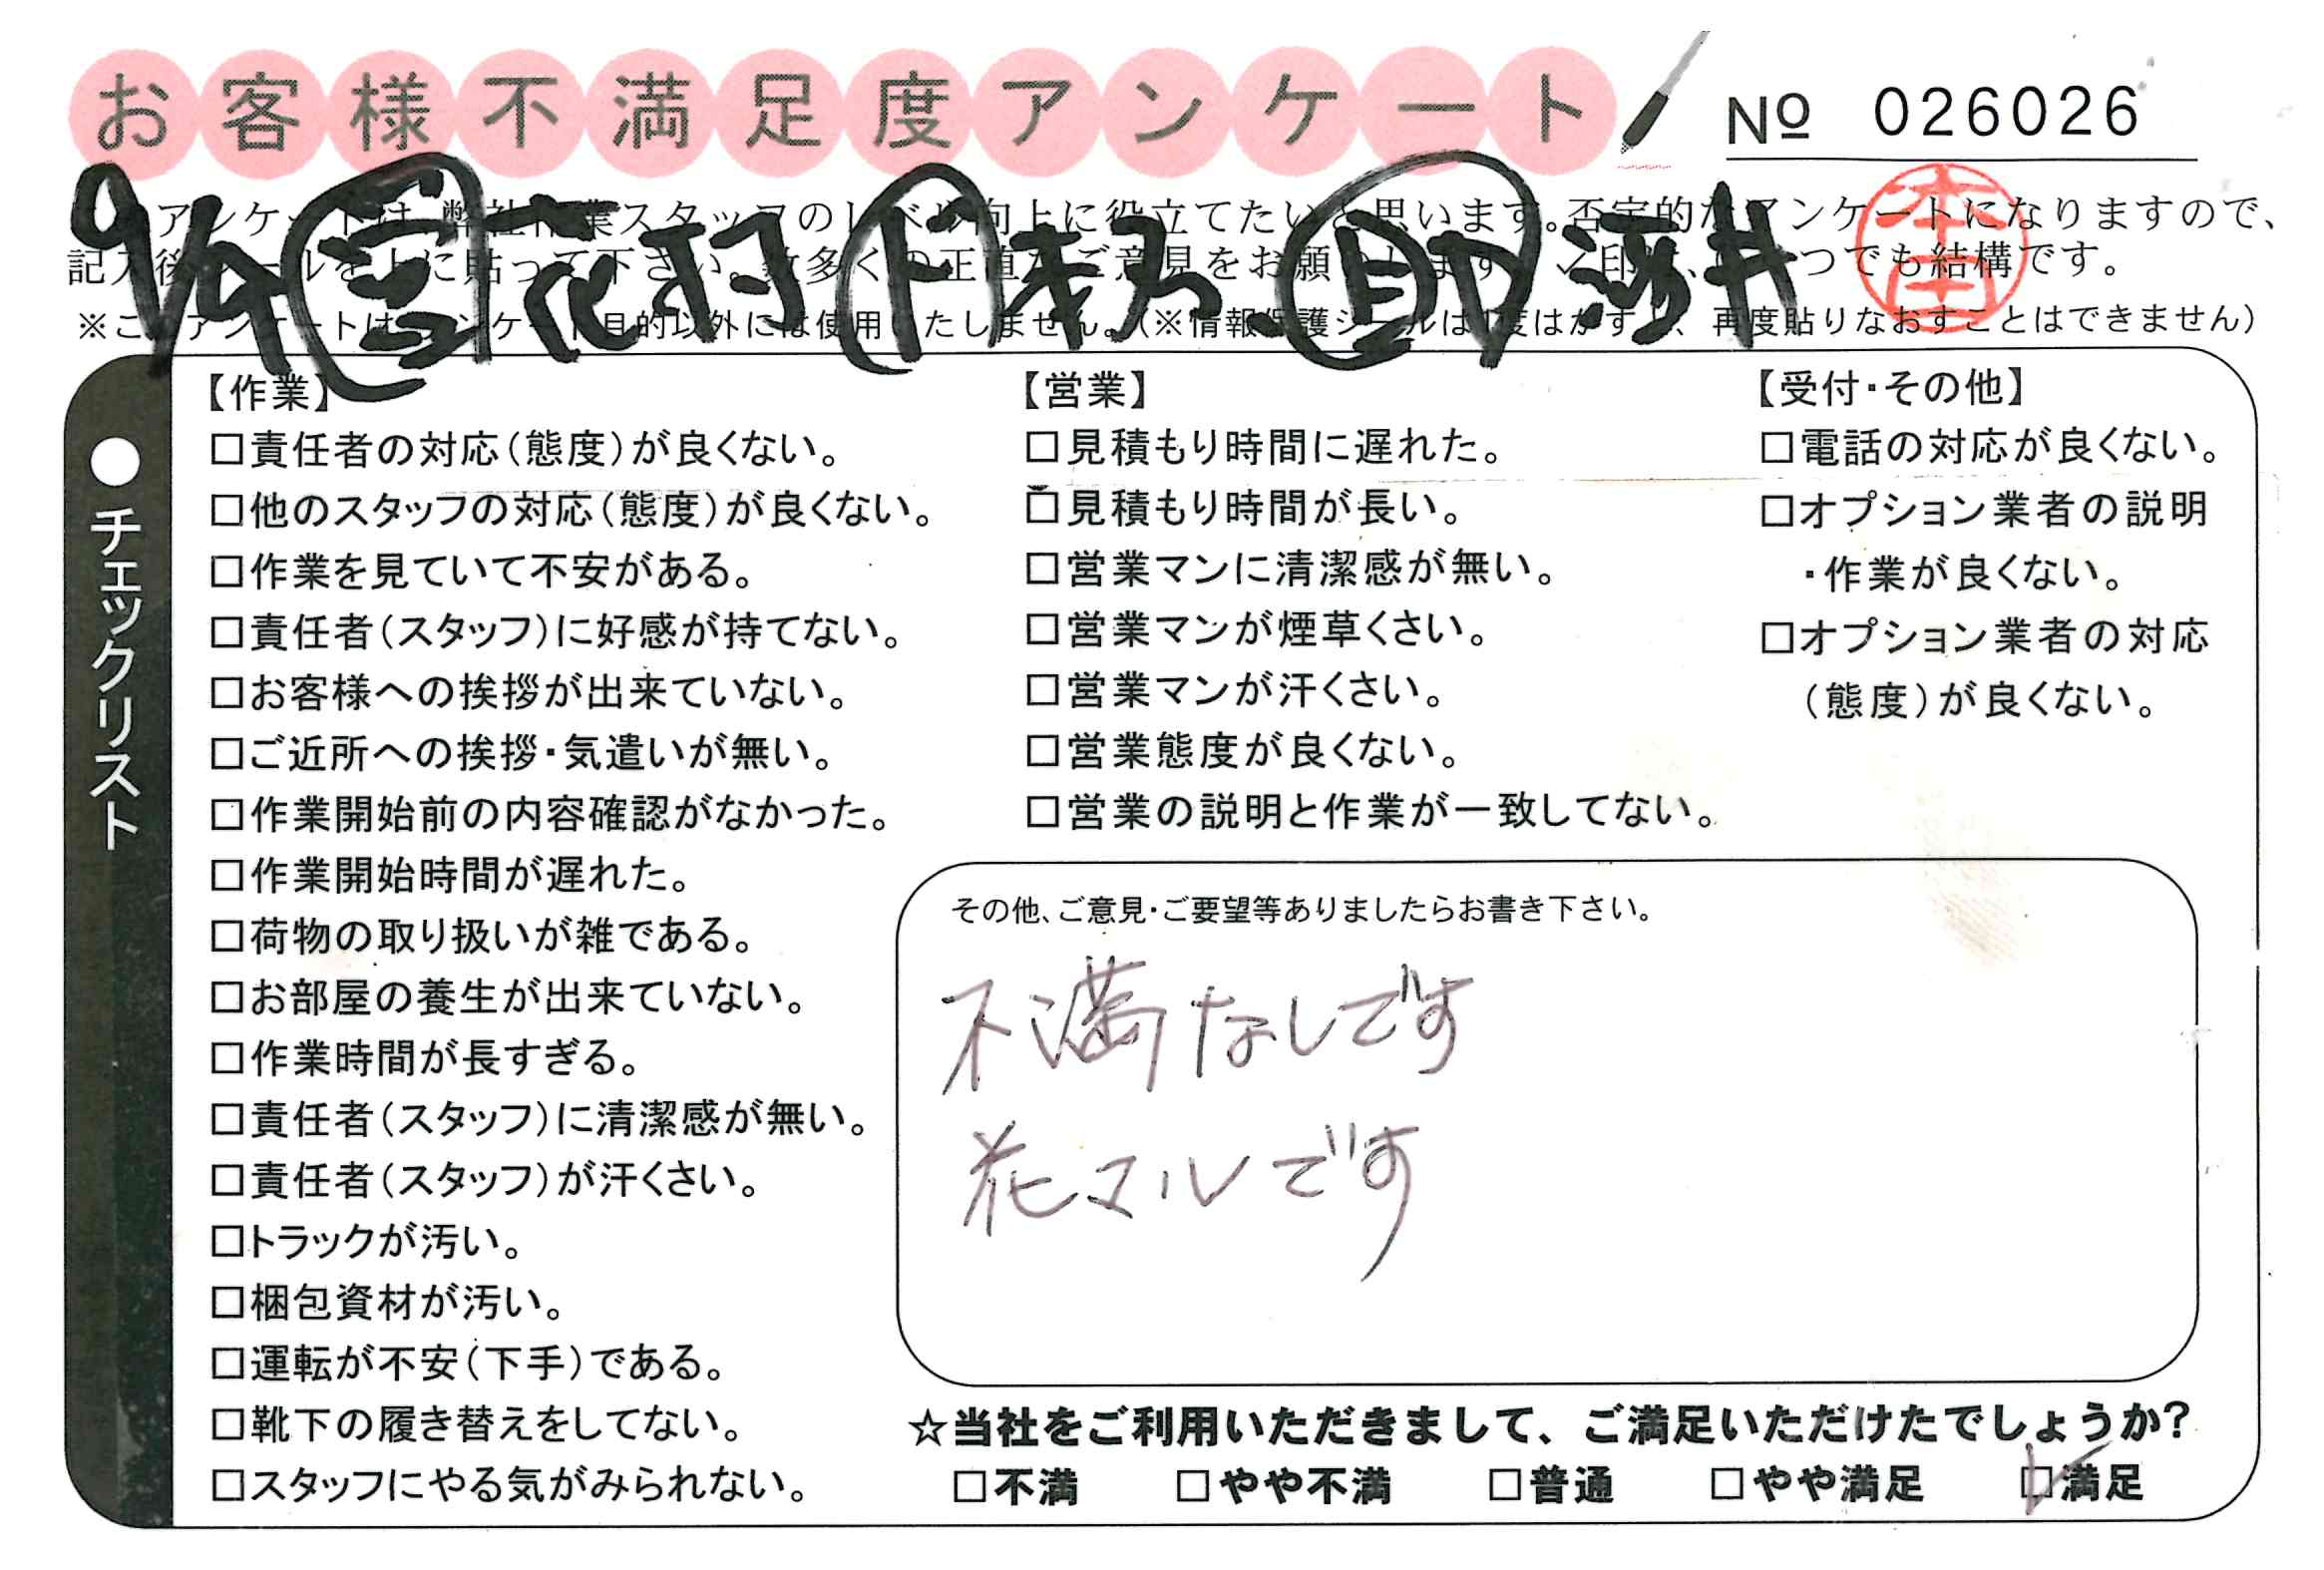 お客様不満足度アンケート
№ 026026
アンケートは、弊社作業スタッフのレベル向上に役立てたいと思います。否定的なアンケートになりますので、
記入後シールを上に貼って下さい。数多くの正直なご意見をお願いします。レ印は、いくつでも結構です。
※このアンケートはアンケート目的以外には使用いたしません。（※情報保護シールは1度はがすと、再度貼りなおすことはできません）
9/9 営 花村 ド 即
本田
●チェックリスト
【作業】
□責任者の対応（態度）が良くない。
□他のスタッフの対応（態度）が良くない。
□作業を見ていて不安がある。
□責任者（スタッフ）に好感が持てない。
□お客様への挨拶が出来ていない。
□ご近所への挨拶・気遣いが無い。
□作業開始前の内容確認がなかった。
□作業開始時間が遅れた。
□荷物の取り扱いが雑である。
□お部屋の養生が出来ていない。
□作業時間が長すぎる。
□責任者（スタッフ）に清潔感が無い。
□責任者（スタッフ）が汗くさい。
□トラックが汚い。
□梱包資材が汚い。
□運転が不安（下手）である。
□靴下の履き替えをしてない。
□スタッフにやる気がみられない。
【営業】
□見積もり時間に遅れた。
□見積もり時間が長い。
□営業マンに清潔感が無い。
□営業マンが煙草くさい。
□営業マンが汗くさい。
□営業態度が良くない。
□営業の説明と作業が一致してない。
【受付・その他】
□電話の対応が良くない。
□オプション業者の説明
・作業が良くない。
□オプション業者の対応
（態度）が良くない。
その他、ご意見・ご要望等ありましたらお書き下さい。
不満なしです
花マルです
☆当社をご利用いただきまして、ご満足いただけたでしょうか?
□不満 □やや不満 □普通 □やや満足 ☑満足